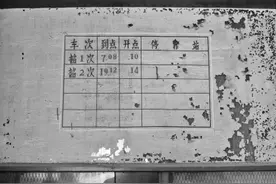 车次 到点 开点 停靠站
站1次 7 09 10
站2次 10 12 14